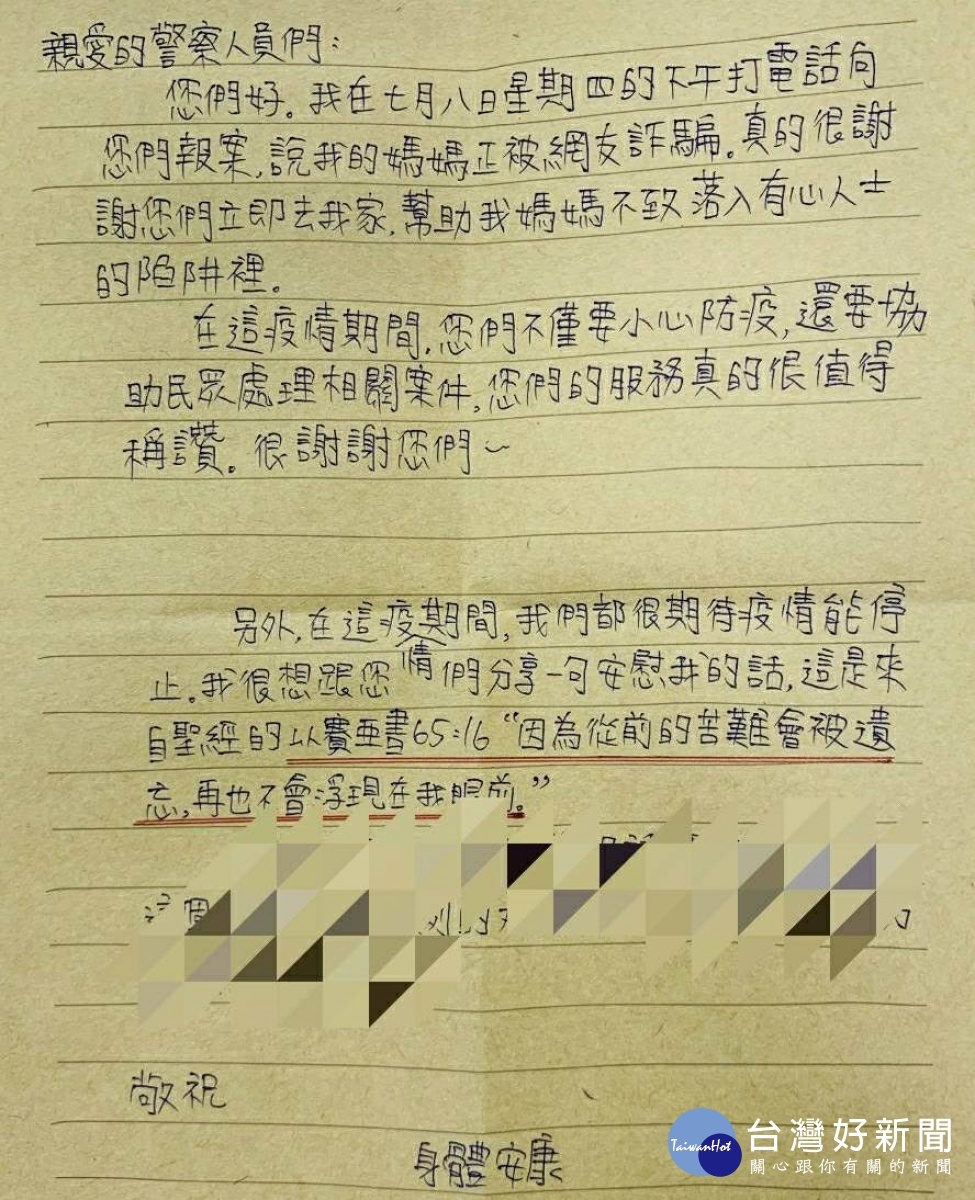 親愛的警察人員們：
您們好。我在七月八日星期四的下午打電話向
您們報案，說我的媽媽正被網友詐騙。真的很謝
謝您們立即去我家，幫助我媽媽不致落入有心人士
的陷阱裡。
在這疫情期間，您們不僅要小心防疫，還要協
助民眾處理相關案件，您們的服務真的很值得
稱讚。很謝謝您們~
另外，在這疫情期間，我們都很期待疫情能停
止。我很想跟您們分享一句安慰我的話，這是來
自聖經的以賽亞書65:16“因為從前的苦難會被遺
忘，再也不會浮現在我眼前。”
這個
敬祝
身體安康
TaiwanHot
台灣好新聞
關心跟你有關的新聞